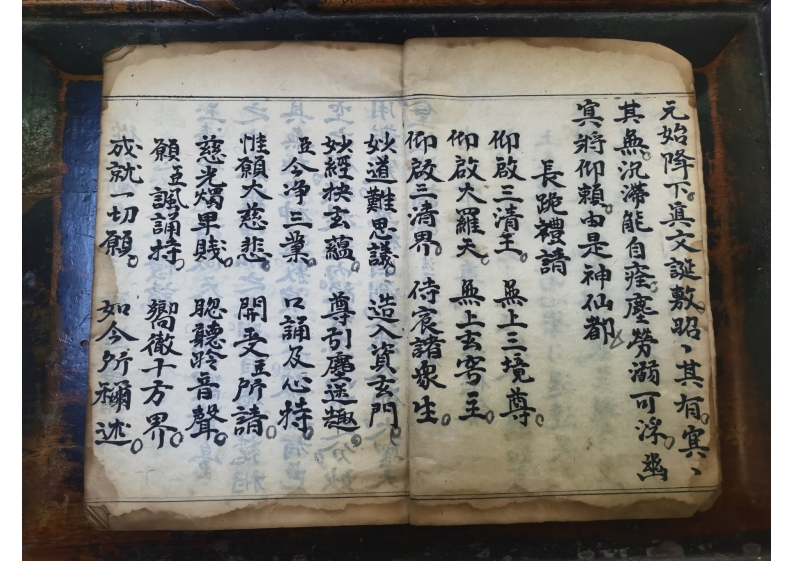 元始降下。真文誕敷。昭〻其有。冥〻
其無。沉滯能自痊。塵勞溺可浮。幽
冥將仰賴。由是神仙都
長跪禮請
仰啟三清主。無上三境尊。
仰啟大羅天。無上玄穹主。
仰啟三清界。侍宸諸眾生。
妙道難思議。造入資玄門。
妙經抉玄蘊。尊引塵迷趣。
臣今淨三業。口誦及心持。
惟願大慈悲。開受臣所請。
慈光燭畢賤。聰聽聆音聲。
願臣諷誦持。嚮徹十方界。
成就一切願。如今所稱述。